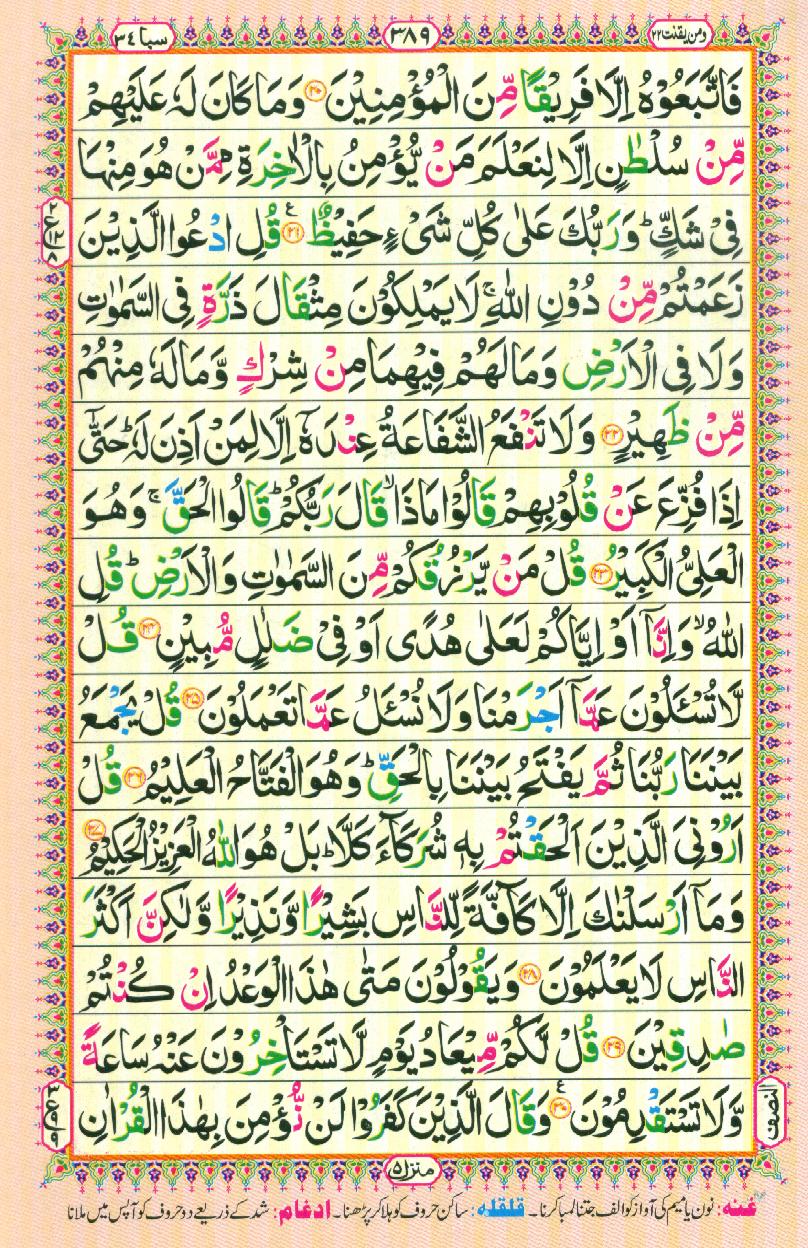 ومن يقنت ٢٢
٣٨٩
سبا ٣٤
فَاتَّبَعُوْهُ اِلَّا فَرِيْقًا مِّنَ الْمُؤْمِنِيْنَ ﴿۲۰﴾ وَمَا كَانَ لَهٗ عَلَيْهِمْ
مِّنْ سُلْطٰنٍ اِلَّا لِنَعْلَمَ مَنْ يُّؤْمِنُ بِالْاٰخِرَةِ مِمَّنْ هُوَ مِنْهَا
فِىْ شَكٍّ ؕ وَرَبُّكَ عَلٰى كُلِّ شَىْءٍ حَفِيْظٌ ﴿۲۱﴾ ع قُلِ ادْعُوا الَّذِيْنَ
زَعَمْتُمْ مِّنْ دُوْنِ اللّٰهِ ۚ لَا يَمْلِكُوْنَ مِثْقَالَ ذَرَّةٍ فِى السَّمٰوٰتِ
وَلَا فِى الْاَرْضِ وَمَا لَهُمْ فِيْهِمَا مِنْ شِرْكٍ وَّمَا لَهٗ مِنْهُمْ
مِّنْ ظَهِيْرٍ ﴿۲۲﴾ وَلَا تَنْفَعُ الشَّفَاعَةُ عِنْدَهٗۤ اِلَّا لِمَنْ اَذِنَ لَهٗ ؕ حَتّٰٓى
اِذَا فُزِّعَ عَنْ قُلُوْبِهِمْ قَالُوْا مَاذَا ۙ قَالَ رَبُّكُمْ ؕ قَالُوا الْحَقَّ ۚ وَهُوَ
الْعَلِىُّ الْكَبِيْرُ ﴿۲۳﴾ قُلْ مَنْ يَّرْزُقُكُمْ مِّنَ السَّمٰوٰتِ وَالْاَرْضِ ؕ قُلِ
اللّٰهُ ۙ وَاِنَّاۤ اَوْ اِيَّاكُمْ لَعَلٰى هُدًى اَوْ فِىْ ضَلٰلٍ مُّبِيْنٍ ﴿۲۴﴾ قُلْ
لَّا تُسْـَٔلُوْنَ عَمَّاۤ اَجْرَمْنَا وَلَا نُسْـَٔلُ عَمَّا تَعْمَلُوْنَ ﴿۲۵﴾ قُلْ يَجْمَعُ
بَيْنَنَا رَبُّنَا ثُمَّ يَفْتَحُ بَيْنَنَا بِالْحَقِّ ؕ وَهُوَ الْفَتَّاحُ الْعَلِيْمُ ﴿۲۶﴾ قُلْ
اَرُوْنِىَ الَّذِيْنَ اَلْحَقْتُمْ بِهٖ شُرَكَآءَ كَلَّا ؕ بَلْ هُوَ اللّٰهُ الْعَزِيْزُ الْحَكِيْمُ ﴿۲۷﴾
وَمَاۤ اَرْسَلْنٰكَ اِلَّا كَآفَّةً لِّلنَّاسِ بَشِيْرًا وَّنَذِيْرًا وَّلٰكِنَّ اَكْثَرَ
النَّاسِ لَا يَعْلَمُوْنَ ﴿۲۸﴾ وَيَقُوْلُوْنَ مَتٰى هٰذَا الْوَعْدُ اِنْ كُنْتُمْ
صٰدِقِيْنَ ﴿۲۹﴾ قُلْ لَّكُمْ مِّيْعَادُ يَوْمٍ لَّا تَسْتَاْخِرُوْنَ عَنْهُ سَاعَةً
وَّلَا تَسْتَقْدِمُوْنَ ﴿۳۰﴾ ع وَقَالَ الَّذِيْنَ كَفَرُوْا لَنْ نُّؤْمِنَ بِهٰذَا الْقُرْاٰنِ
النصف
منزل ۵
غنه: نون یا میم کی آواز کو الف جتنا لمبا کرنا۔ قلقله: ساکن حروف کو ہلا کر پڑھنا۔ ادغام: شد کے ذریعے دو حروف کو آپس میں ملانا